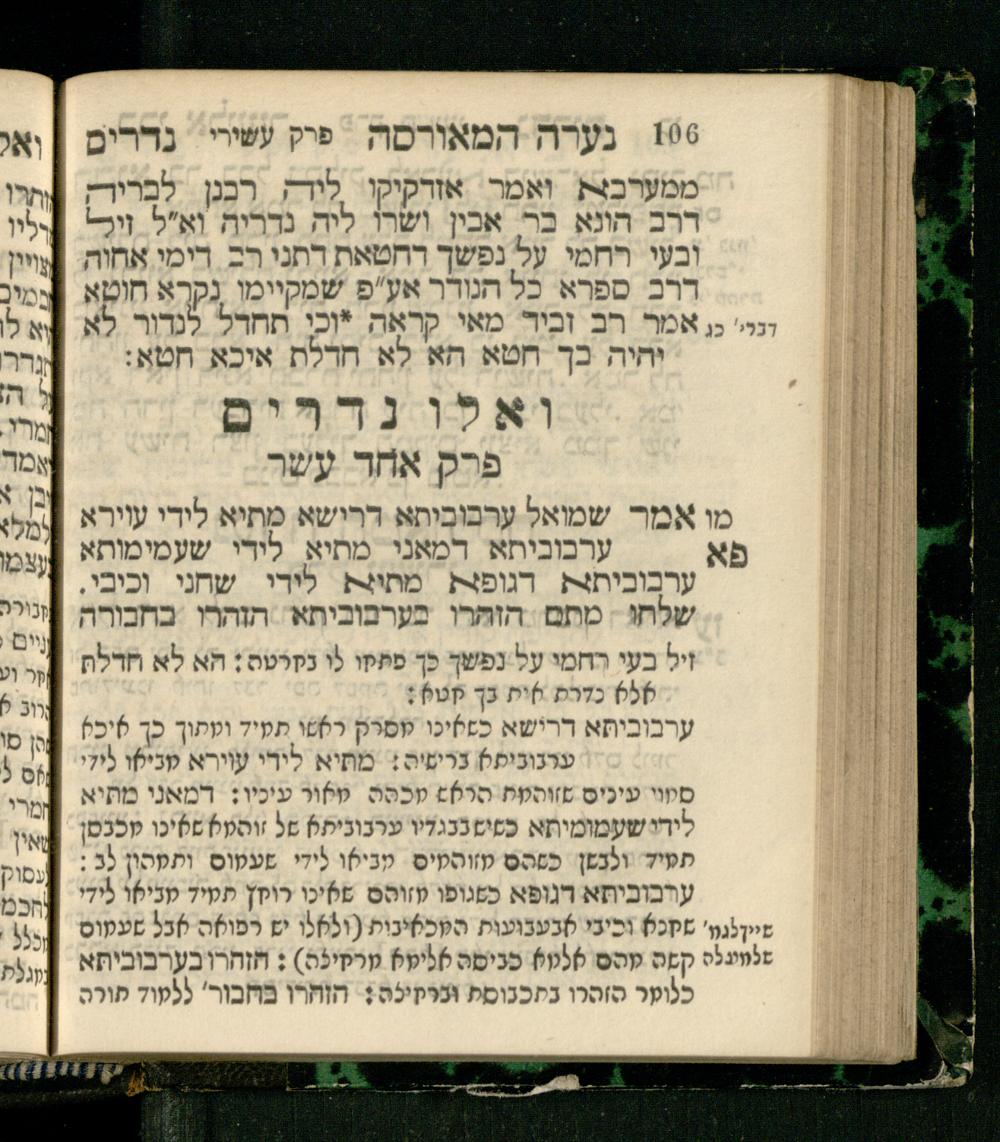 106 נערה המאורסה פרק עשירי נדרים
ממערבא ואמר אזדקיקו ליה רבנן לבריה
דרב הונא בר אבין ושרו ליה נדריה וא״ל זיל
ובעי רחמי על נפשך דחטאת דתני רב דימי אחוה
דרב ספרא כל הנודר אע״פ שמקיימו נקרא חוטא
דברי׳ כג אמר רב זביד מאי קראה *וכי תחדל לנדור לא
יהיה בך חטא הא לא חדלת איכא חטא:
ואלו נדרים
פרק אחד עשר
מו אמר שמואל ערבוביתא דרישא מתיא לידי עוירא
פא ערבוביתא דמאני מתיא לידי שעמימותא
ערבוביתא דגופא מתיא לידי שחני וכיבי.
שלחו מתם הזהרו בערבוביתא הזהרו בחבורה
זיל בעי רחמי על נפשך כך פתקו לו בקרטה: הא לא חדלת
אלא נדרת אית בך חטא:
ערבוביתא דרישא כשאינו מסרק ראשו תמיד ומתוך כך איכא
ערבוביתא ברישיה: מתיא לידי עוירא מביאו לידי
סמוי עינים שזוהמת הראש מכהה מאור עיניו: דמאני מתיא
לידי שעמומיתא כשיש בבגדיו ערבוביתא של זוהמא שאינו מכבסן
תמיד ולבשן כשהם מזוהמים מביאו לידי שעמום ותמהון לב:
ערבוביתא דגופא כשגופו מזוהם שאינו רוחץ תמיד מביאו לידי
שיידלגמ׳ שחנא וכיבי אבעבועות המכאיבות (ולאלו יש רפואה אבל שעמום
שלמעלה קשה מהם אלמא כביסה אלימא מרחילה): הזהרו בערבוביתא
כלומר הזהרו בתכבוסת וברחילה: הזהרו בחבור׳ ללמוד תורה